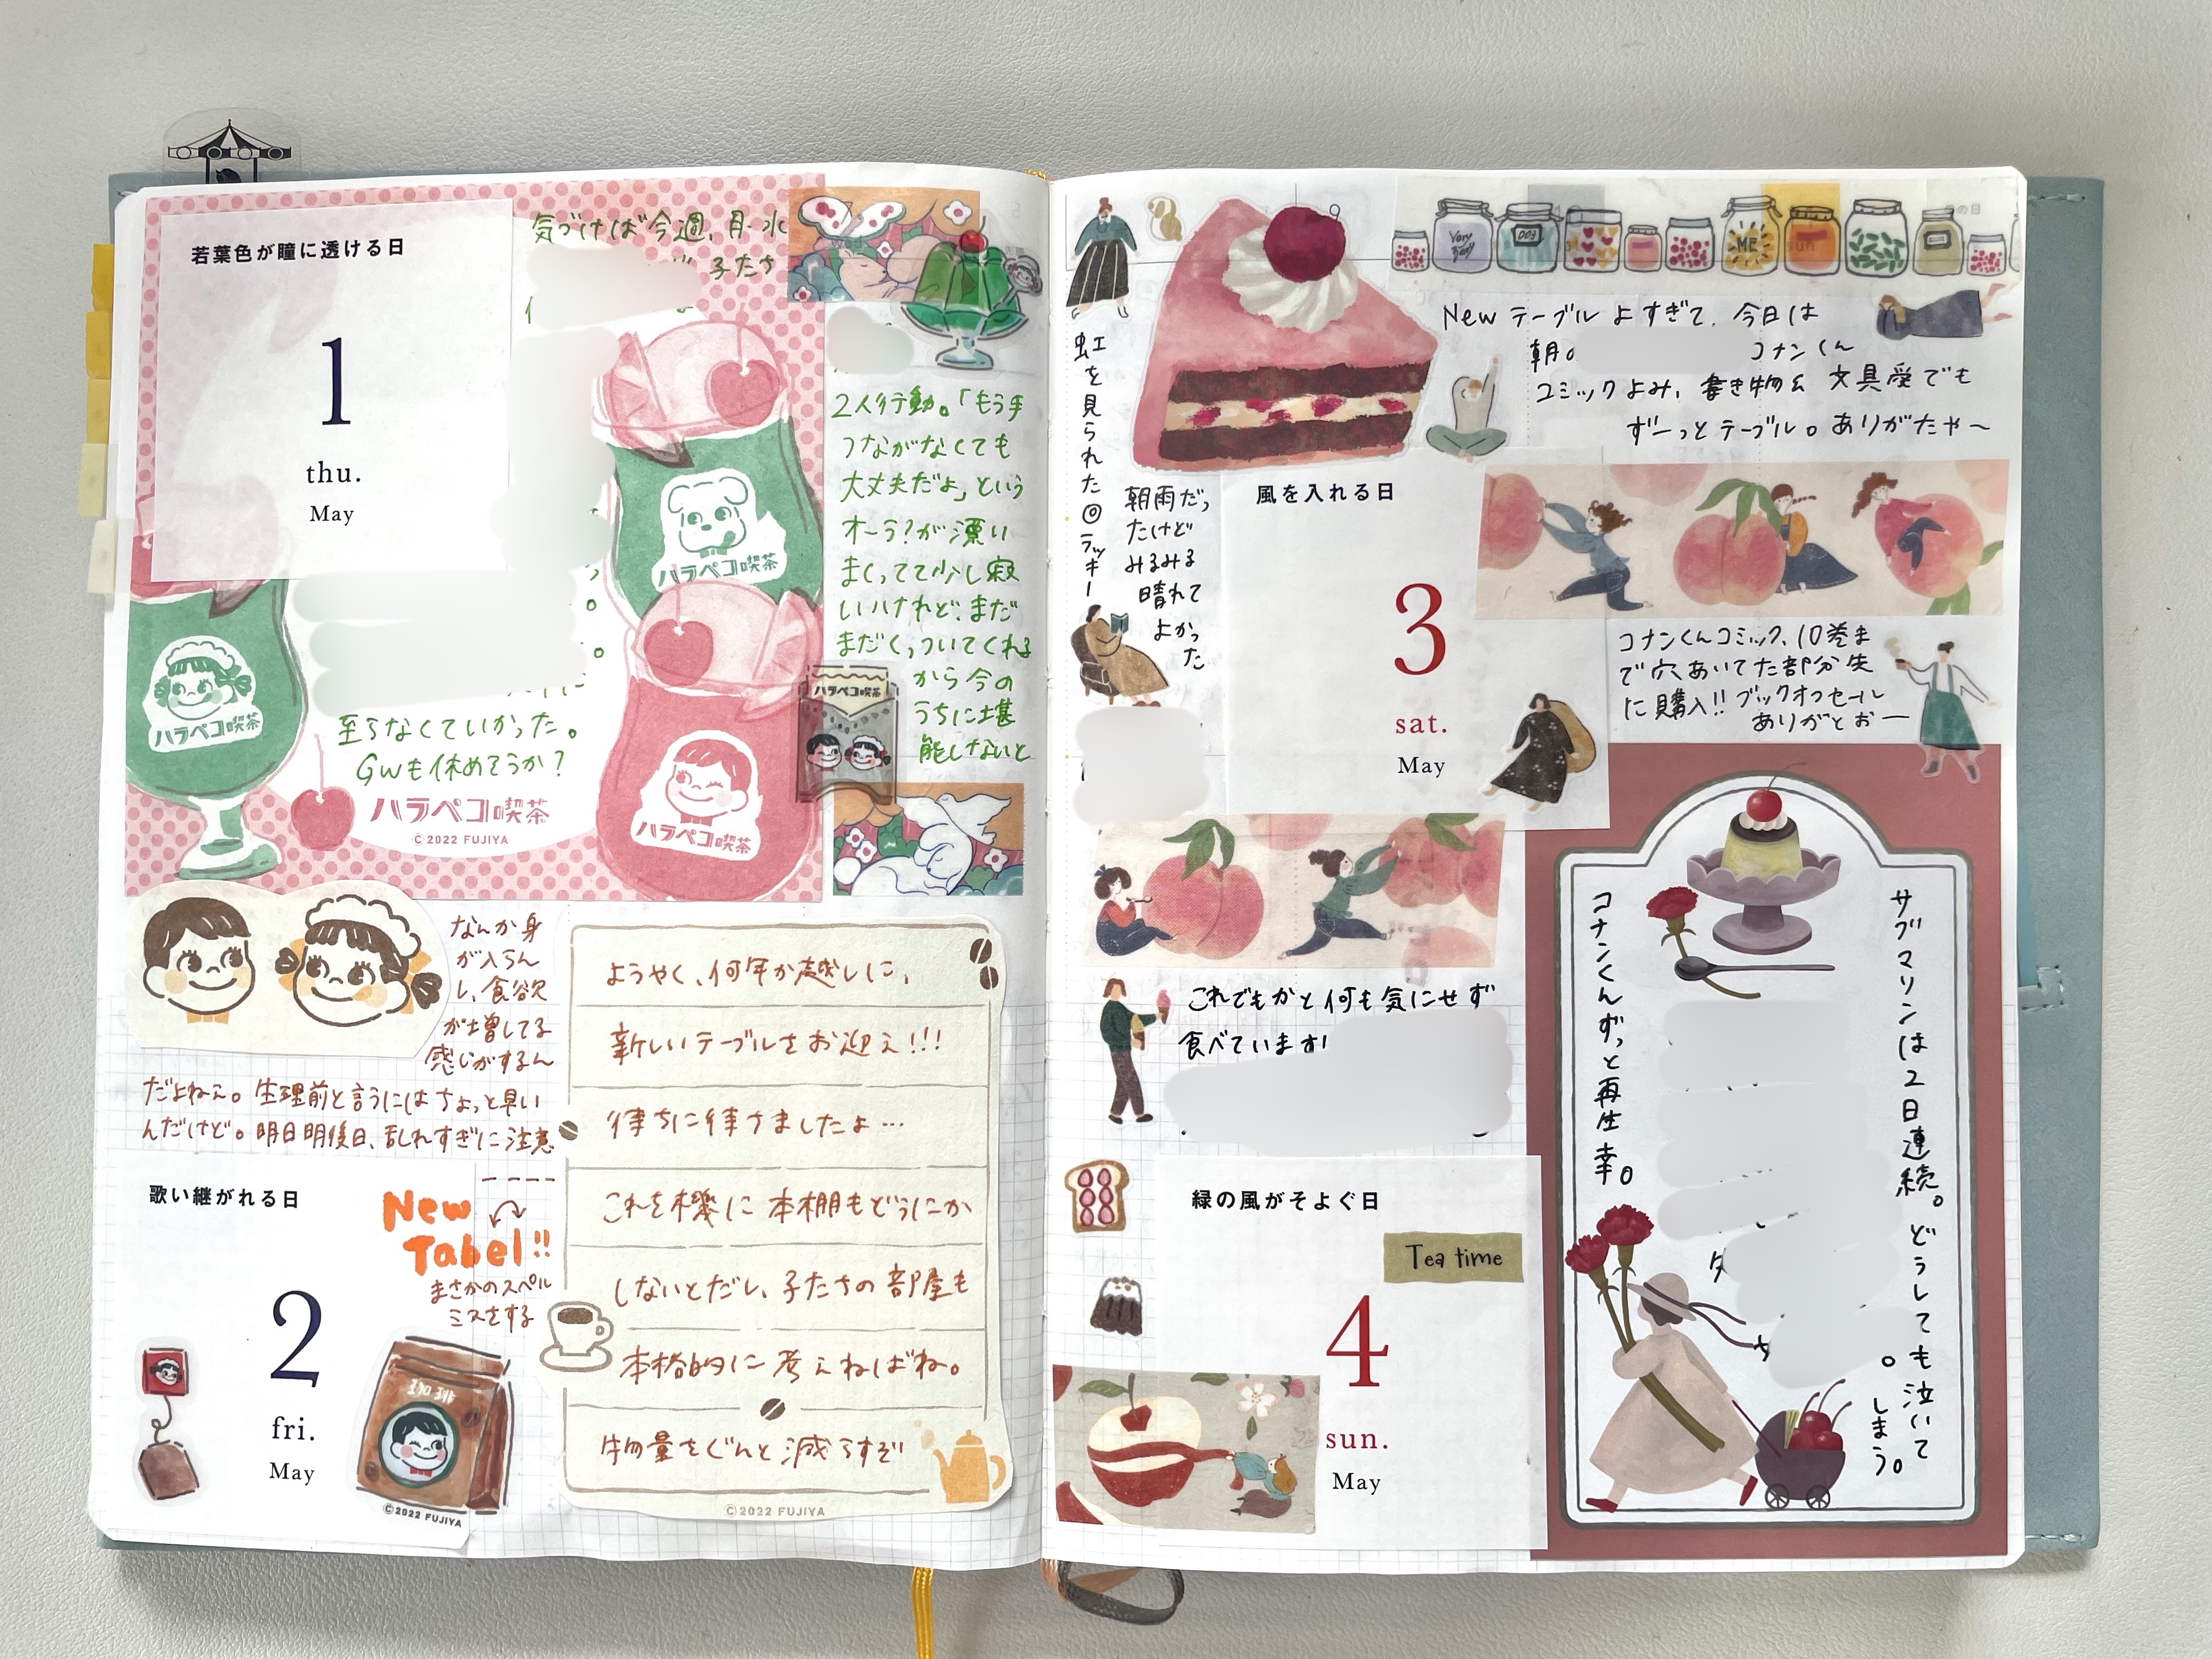 若葉色が瞳に透ける日
1
thu.
May
気づけば今週、月・水
子たち
至らなくていかった。
GWも休めそうか?
ハラペコ喫茶
©2022 FUJIYA
ハラペコ喫茶
ハラペコ喫茶
ハラペコ喫茶
2人行動。「もう手
つながなくても
大丈夫だよ」という
オーラ?が漂い
まくってて少し寂
しいけれど、まだ
まだくっついてくれる
から今の
うちに堪
能しないと
ハラペコ喫茶
なんか身
が入らん
し、食欲
が増してる
感じがするん
だよねぇ。生理前と言うにはちょっと早い
んだけど。明日明後日、乱れすぎに注意
歌い継がれる日
2
fri.
May
New
Tabel!!
まさかのスペル
ミスをする
珈琲
©2022 FUJIYA
ようやく、何年か越しに、
新しいテーブルをお迎え!!!
待ちに待ちましたよ…
これを機に本棚もどうにか
しないとだし、子たちの部屋も
本格的に考えねばね。
物量をぐんと減らすぞ
©2022 FUJIYA
虹を見られた◎ラッキー
朝雨だっ
たけど
みるみる
晴れて
よかっ
た
New テーブルよすぎて、今日は
朝。
コナンくん
コミックよみ、書き物&文具愛でも
ずーっとテーブル。ありがたや〜
風を入れる日
3
sat.
May
コナンくんコミック、10巻ま
で穴あいてた部分先
に購入!!ブックオフセール
ありがとおー
これでもかと何も気にせず
食べています!
緑の風がそよぐ日
Tea time
4
sun.
May
サブマリンは2日連続。どうしても泣いて
しまう。
コナンくんずっと再生 幸。